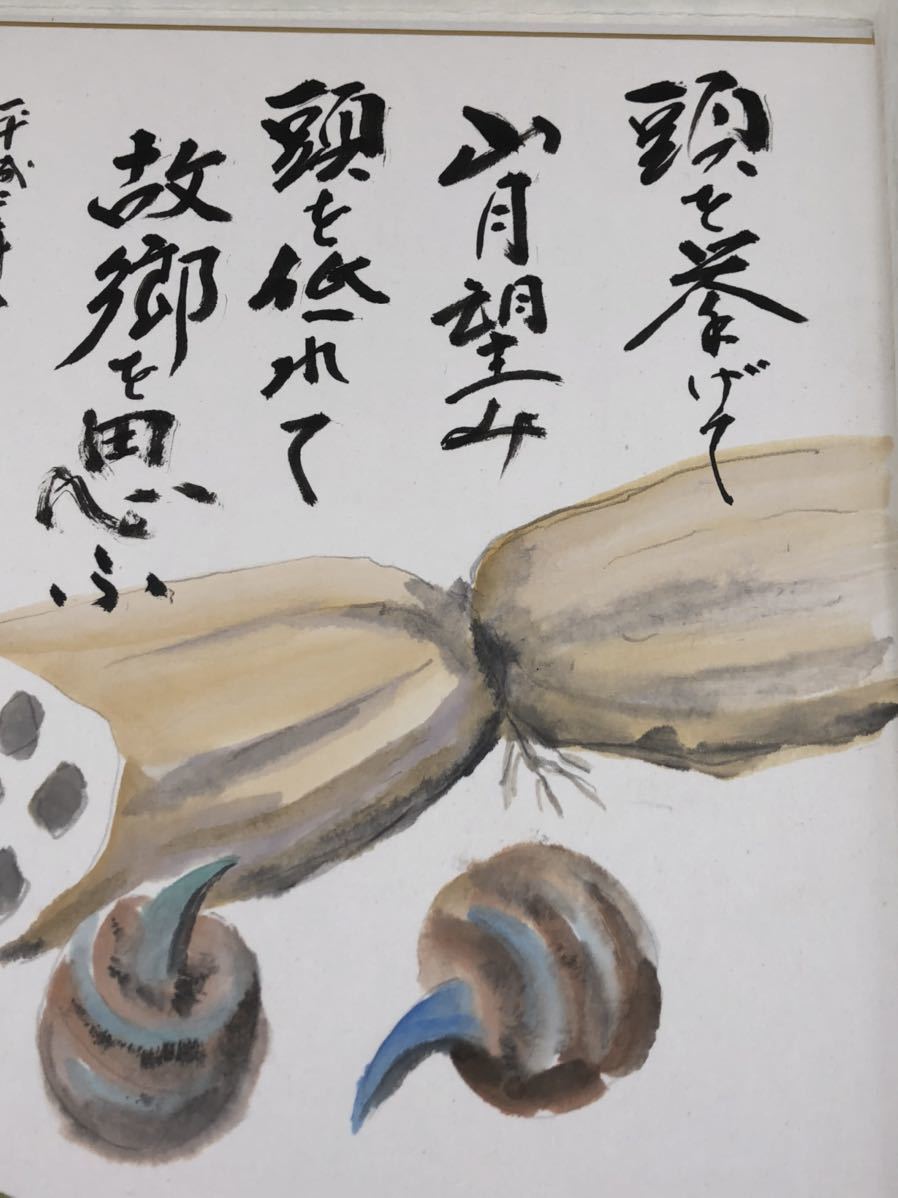 頭を挙げて
山月望み
頭を低れて
故郷を思ふ
平成二年